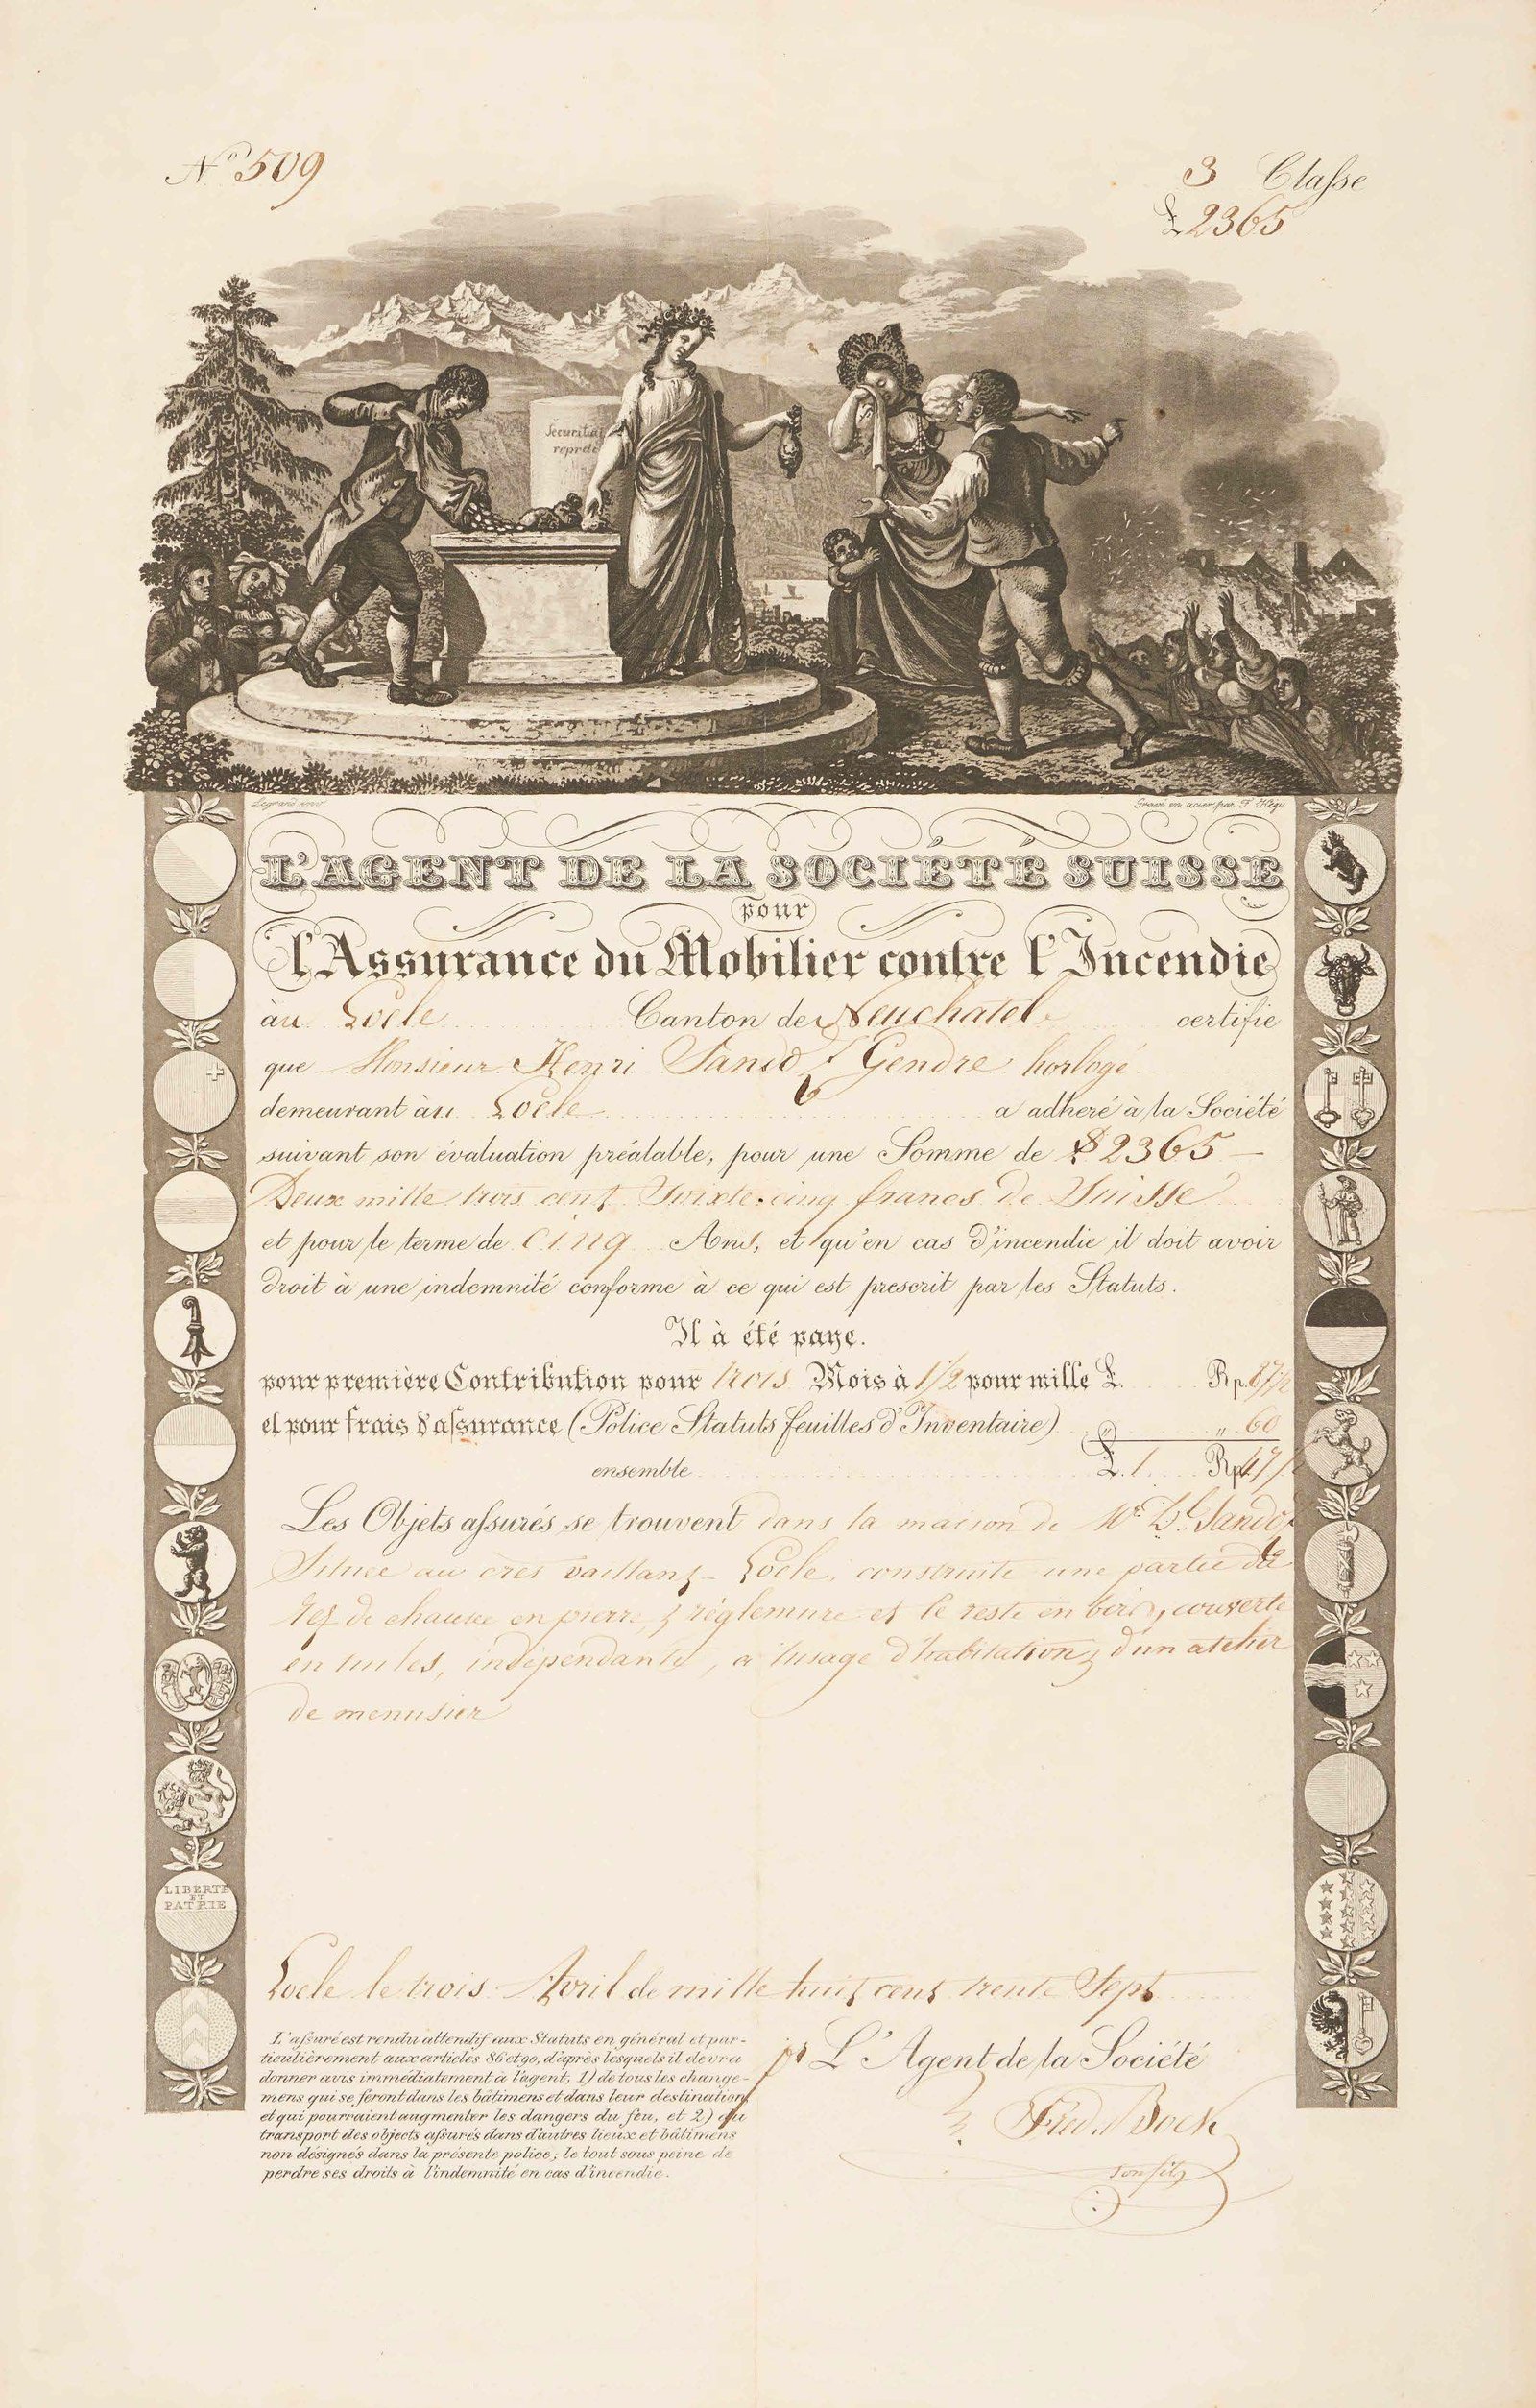 Nº 509
3 Classe
£ 2365
Securita
reprde
Legrand inv.
Gravé en acier par F. Hegi
L'AGENT DE LA SOCIÉTÉ SUISSE
pour
l'Assurance du Mobilier contre l'Incendie
àu Locle Canton de Neuchatel certifie
que Monsieur Henri Sandoz Gendre horlogé
demeurant àu Locle a adheré à la Société
suivant son évaluation préalable, pour une Somme de £ 2365 —
Deux mille trois cent Soixte-cinq francs de Suisse
et pour le terme de Cinq Ans, et qu'en cas d'incendie il doit avoir
droit à une indemnité conforme à ce qui est prescrit par les Statuts.
Il à été paye.
pour première Contribution pour trois Mois à 1 1/2 pour mille £. Rp. 87 1/2
et pour frais d'assurance (Police Statuts feuilles d'Inventaire) " " 60
ensemble £. 1 Rp. 47 1/2
Les Objets assurés se trouvent dans la maison de Mr D. L. Sandoz
Située au crêt vaillant Locle, construite une partie du
rez de chaussée en pierre & réglemure et le reste en bois, couverte
en tuiles, indépendante, a lusage d'habitation & d'un atelier
de menusier
LIBERTE
ET
PATRIE
Locle le trois Avril de mille huit cent trente Sept
L'assuré est rendu attendif aux Statuts en général et par-
ticulièrement aux articles 86 et 90, d'après lesquels il devra
donner avis immédiatement à l'agent, 1) de tous les change-
mens qui se feront dans les bâtimens et dans leur destination,
et qui pourraient augmenter les dangers du feu, et 2) du
transport des objects assurés dans d'autres lieux et bâtimens
non désignés dans la présente police; le tout sous peine de
perdre ses droits à l'indemnité en cas d'incendie.
pr L'Agent de la Société
Fréd. Bock
son fils